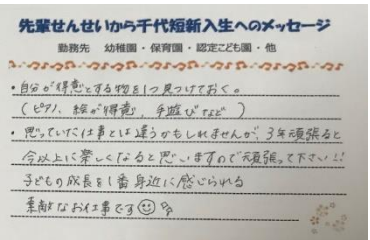 先輩せんせいから千代短新入生へのメッセージ
勤務先 幼稚園・保育園・認定こども園・他
・自分が得意とする物を1つ見つけておく。
(ピアノ、絵が得意、手遊びなど)
・思っていた仕事とは違うかもしれませんが、3年頑張ると
今以上に楽しくなると思いますので頑張って下さい!!
子どもの成長を1番身近に感じられる
素敵なお仕事です